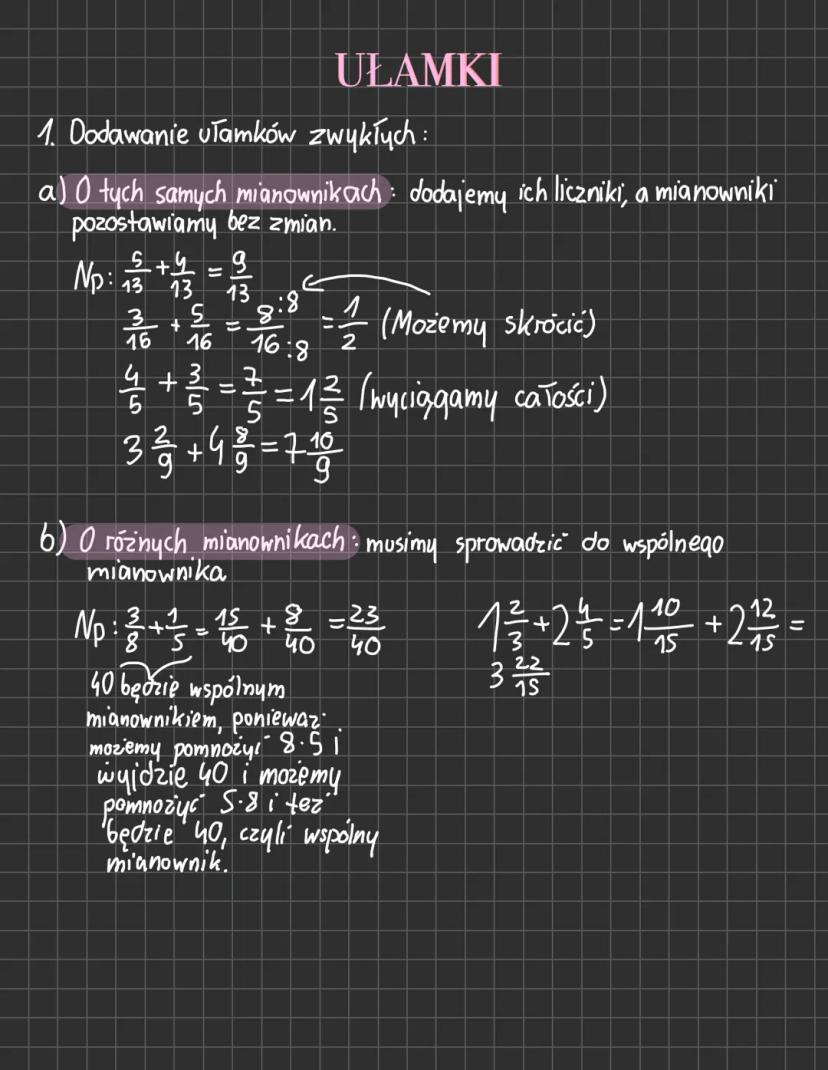 UŁAMKI
1. Dodawanie ułamków zwykłych:
a) O tych samych mianownikach: dodajemy ich liczniki, a mianowniki
pozostawiamy bez zmian.
Np: 5/13 + 4/13 = 9/13
3/16 + 5/16 = 8:8/16:8 = 1/2 (Możemy skrócić)
4/5 + 3/5 = 7/5 = 1 2/5 (wyciągamy całości)
3 2/9 + 4 8/9 = 7 10/9
b) O różnych mianownikach: musimy sprowadzić do wspólnego
mianownika
Np: 3/8 + 1/5 = 15/40 + 8/40 = 23/40
40 będzie wspólnym
mianownikiem, ponieważ
możemy pomnożyć 8·5 i
wyjdzie 40 i możemy
pomnożyć 5·8 i też
będzie 40, czyli wspólny
mianownik.
1 2/3 + 2 4/5 = 1 10/15 + 2 12/15 =
3 22/15